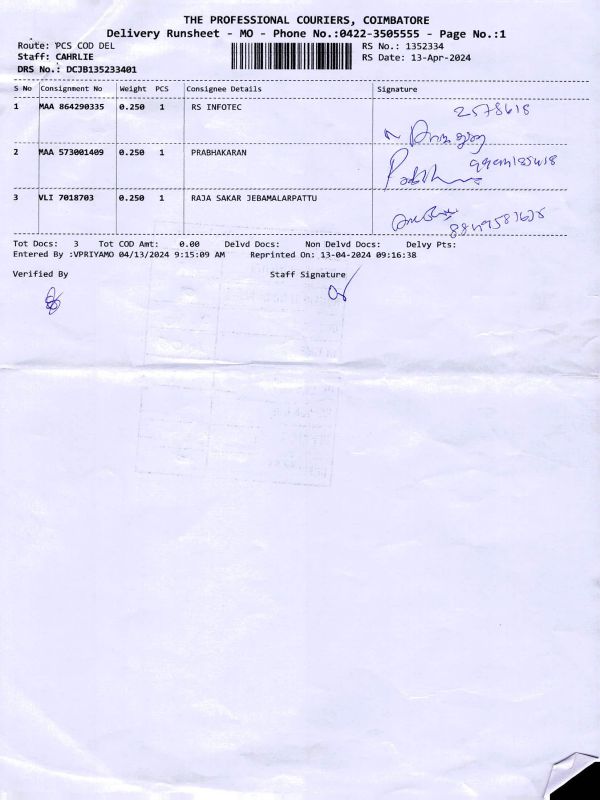 THE PROFESSIONAL COURIERS, COIMBATORE
Delivery Runsheet - MO - Phone No.:0422-3505555 - Page No.:1
Route: PCS COD DEL RS No.: 1352334
Staff: CAHRLIE RS Date: 13-Apr-2024
DRS No.: DCJB135233401
S No Consignment No Weight PCS Consignee Details Signature
1 MAA 864290335 0.250 1 RS INFOTEC 2578618
2 MAA 573001409 0.250 1 PRABHAKARAN
3 VLI 7018703 0.250 1 RAJA SAKAR JEBAMALARPATTU
Tot Docs: 3 Tot COD Amt: 0.00 Delvd Docs: Non Delvd Docs: Delvy Pts:
Entered By :VPRIYAMO 04/13/2024 9:15:09 AM Reprinted On: 13-04-2024 09:16:38
Verified By Staff Signature